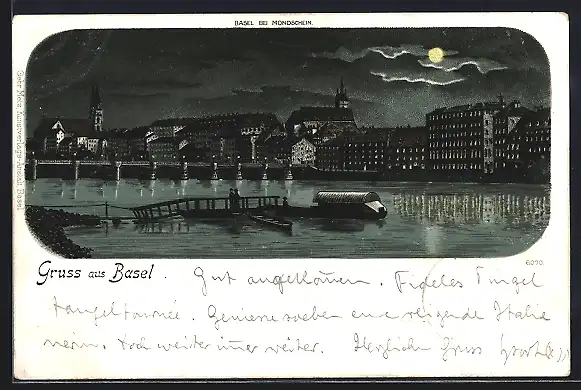 BASEL BEI MONDSCHEIN.
Gebr. Metz, Kunstverlags-Anstalt, Basel
6070.
Gruss aus Basel. Gut angekom̄en. Fideles Tingel
tangel tournée. Geniesse soeben eine reizende Italie
nerin. Doch weiter im̄er weiter. Herzlichen Gruss